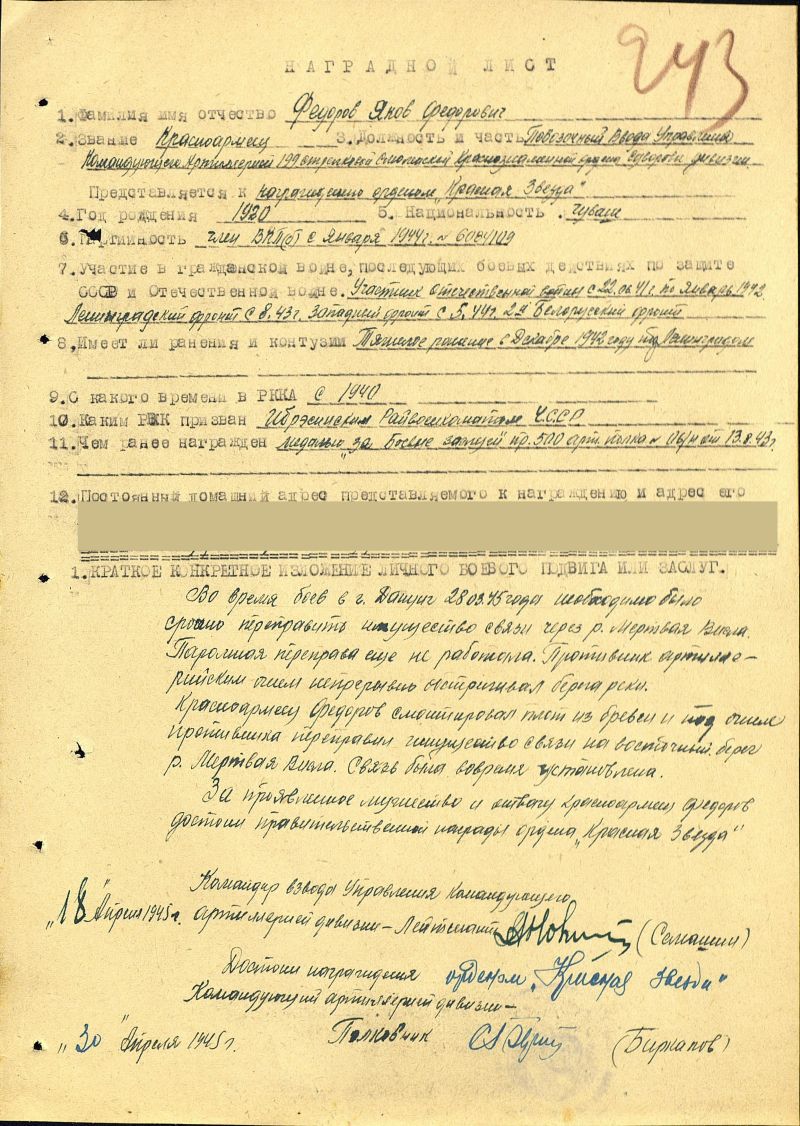 243
НАГРАДНОЙ ЛИСТ
1. Фамилия имя отчество Федоров Яков Федорович
2. Звание Красноармеец 3. Должность и часть Повозочный Взвода Управления
Командующего Артиллерией 199 стрелковой Смоленской Краснознаменной ордена Суворова дивизии
Представляется к награждению орденом "Красная Звезда"
4. Год рождения 1920 5. Национальность чуваш
6. Партийность член ВКП(б) с Января 1944г. № 6084109
7. Участие в гражданской войне, последующих боевых действиях по защите
СССР и Отечественной войне. Участник отечественной войны с 22.06.41г. по Январь 1942
Ленинградский фронт с 8.43г. Западный фронт с 5.44г. 2й Белорусский фронт
8. Имеет ли ранения и контузии Тяжелое ранение в Декабре 1942 году под Ленинградом
9. С какого времени в РККА с 1940
10. Каким РВК призван Ибресинским Райвоенкоматом ЧССР
11. Чем ранее награжден медалью "за боевые заслуги" пр. 500 арт. полка № 06/н от 13.8.43г.
12. Постоянный домашний адрес представляемого к награждению и адрес его
1. КРАТКОЕ КОНКРЕТНОЕ ИЗЛОЖЕНИЕ ЛИЧНОГО БОЕВОГО ПОДВИГА ИЛИ ЗАСЛУГ.
Во время боев в г. Данциг 28.03.45 года необходимо было
срочно переправить имущество связи через р. Мертвая Висла.
Паромная переправа еще не работала. Противник артилле-
рийским огнем непрерывно обстреливал берега реки.
Красноармеец Федоров смонтировал плот из бревен и под огнем
противника переправил имущество связи на восточный берег
р. Мертвая Висла. Связь была вовремя установлена.
За проявленное мужество и отвагу красноармеец Федоров
достоин правительственной награды ордена "Красная Звезда"
Командир взвода Управления Командующего
"18" Апреля 1945г. артиллерией дивизии – Лейтенант (Семашин)
Достоин награждения орденом "Красная звезда"
Командующий артиллерией дивизии –
"30" Апреля 1945г. Полковник (Бирканов)